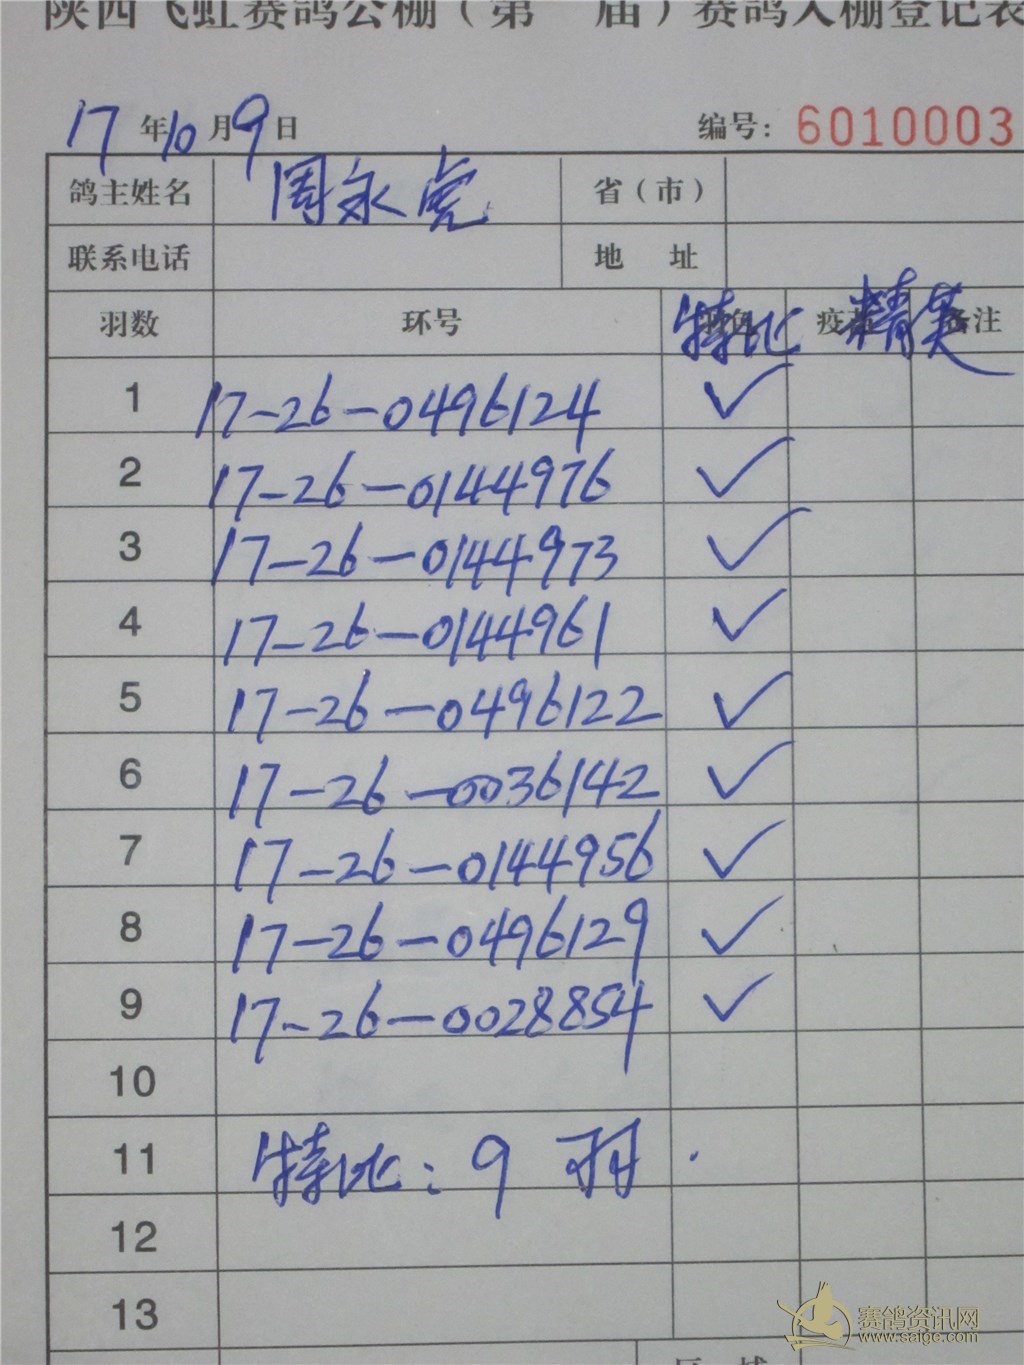 陕西飞虹赛鸽公棚（第 届）赛鸽入棚登记表
17年10月9日 编号：6010003
鸽主姓名 周永虎 省（市）
联系电话 地 址
羽数 环号 特比 疫苗 精英 备注
1 17-26-0496124 ✓
2 17-26-0144976 ✓
3 17-26-0144973 ✓
4 17-26-0144961 ✓
5 17-26-0496122 ✓
6 17-26-0036142 ✓
7 17-26-0144956 ✓
8 17-26-0496129 ✓
9 17-26-0028854 ✓
10
11 特比：9 羽.
12
13
赛鸽资讯网
www.saige.com